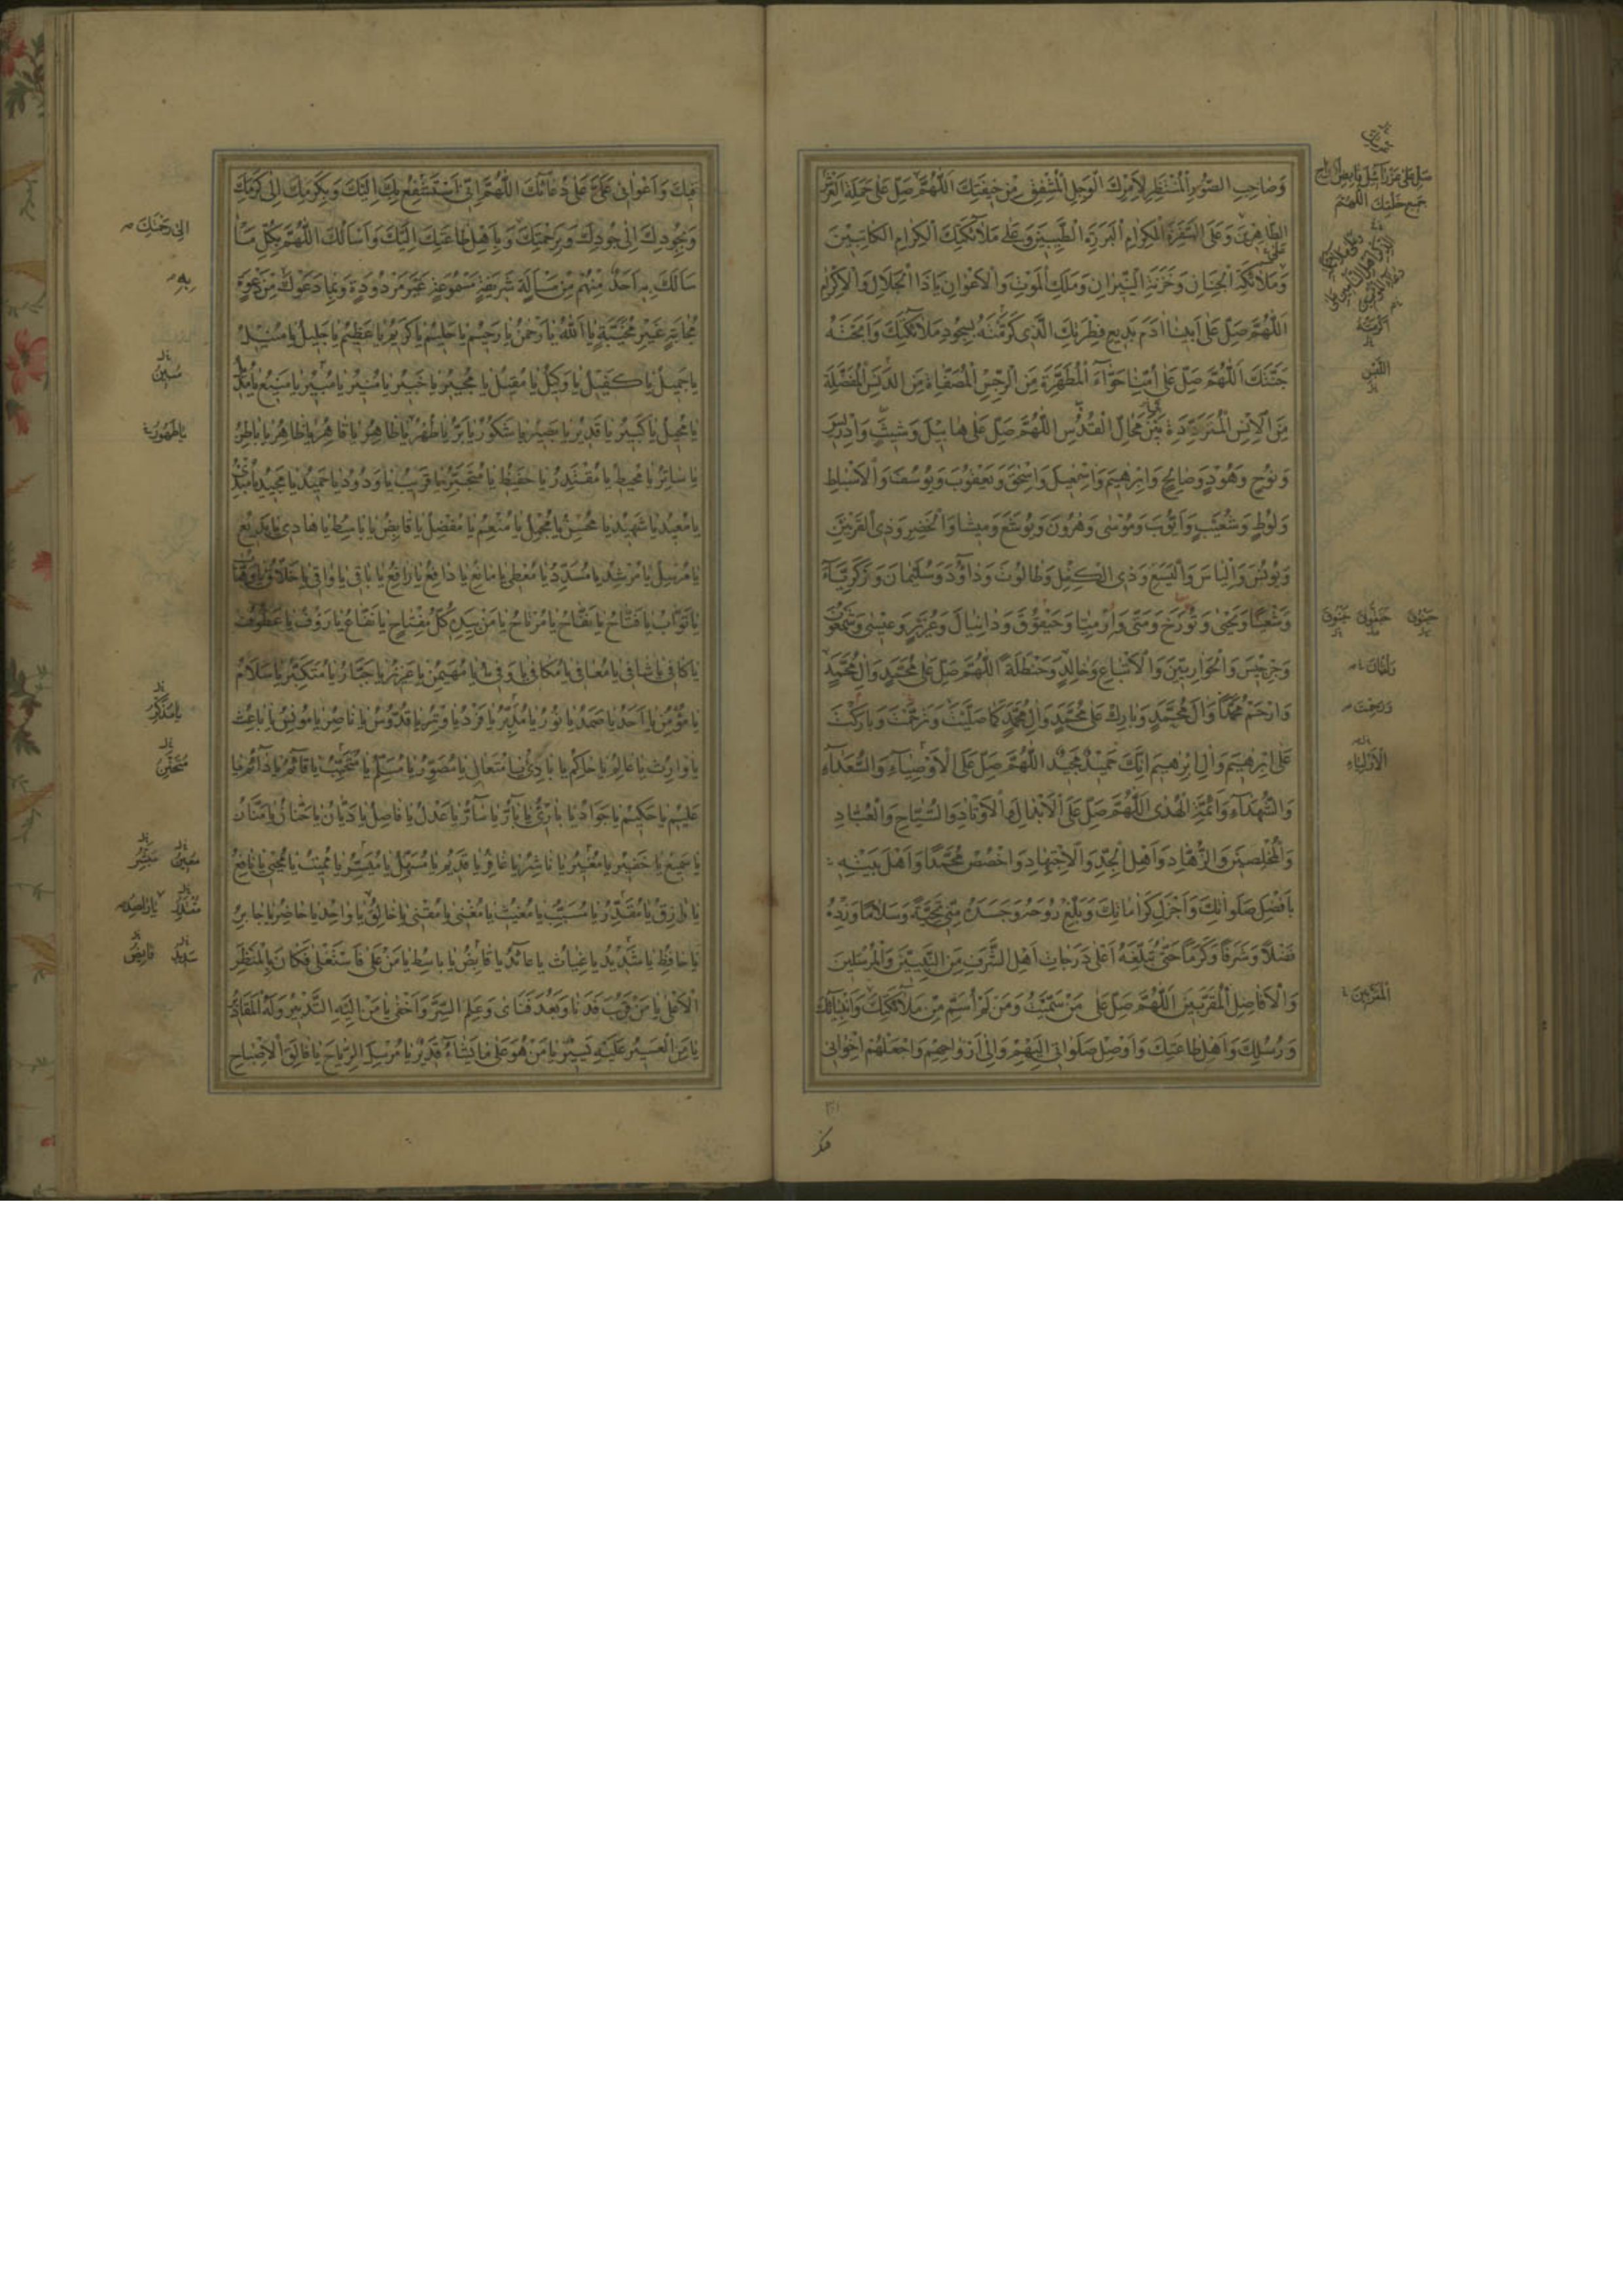 وَصَاحِبِ الصُّورِ الْمُنْتَظِرِ لِاَمْرِكَ الْوَجِلِ الْمُشْفِقِ مِنْ خِيفَتِكَ اَللّٰهُمَّ صَلِّ عَلٰى حَمَلَةِ الْعَرْشِ
الطَّاهِرِينَ وَعَلَى السَّفَرَةِ الْكِرَامِ الْبَرَرَةِ الطَّيِّبِينَ وَعَلٰى مَلَآئِكَتِكَ الْكِرَامِ الْكَاتِبِينَ
وَمَلَآئِكَةِ الْجِنَانِ وَخَزَنَةِ النِّيرَانِ وَمَلَكِ الْمَوْتِ وَالْاَعْوَانِ يَا ذَا الْجَلَالِ وَالْاِكْرَامِ
اَللّٰهُمَّ صَلِّ عَلٰى اَبِينَا اٰدَمَ بَدِيعِ فِطْرَتِكَ الَّذِى كَرَّمْتَهُ بِسُجُودِ مَلَآئِكَتِكَ وَاَبَحْتَهُ
جَنَّتَكَ اَللّٰهُمَّ صَلِّ عَلٰى اُمِّنَا حَوَّآءَ الْمُطَهَّرَةِ مِنَ الرِّجْسِ الْمُصَفَّاةِ مِنَ الدَّنَسِ الْمُفَضَّلَةِ
مِنَ الْاِنْسِ الْمُتَرَدِّدَةِ بَيْنَ مَحَالِّ الْقُدْسِ اَللّٰهُمَّ صَلِّ عَلٰى هَابِيلَ وَشِيثٍ وَاِدْرِيسَ
وَنُوحٍ وَهُودٍ وَصَالِحٍ وَاِبْرٰهِيمَ وَاِسْمٰعِيلَ وَاِسْحٰقَ وَيَعْقُوبَ وَيُوسُفَ وَالْاَسْبَاطِ
وَلُوطٍ وَشُعَيْبٍ وَاَيُّوبَ وَمُوسٰى وَهٰرُونَ وَيُوشَعَ وَمِيشَا وَالْخَضِرِ وَذِى الْقَرْنَيْنِ
وَيُونُسَ وَاِلْيَاسَ وَالْيَسَعَ وَذِى الْكِفْلِ وَطَالُوتَ وَدَاوُدَ وَسُلَيْمَانَ وَزَكَرِيَّآ
وَشَعْيَا وَيَحْيٰى وَتُورَخَ وَمَتّٰى وَاَرْمِيَا وَحَيْقُوقَ وَدَانِيَالَ وَعُزَيْرٍ وَعِيسٰى وَشَمْعُونَ
وَجِرْجِيسَ وَالْحَوَارِيِّينَ وَالْاَتْبَاعِ وَخَالِدٍ وَحَنْظَلَةَ اَللّٰهُمَّ صَلِّ عَلٰى مُحَمَّدٍ وَاٰلِ مُحَمَّدٍ
وَارْحَمْ مُحَمَّدًا وَاٰلَ مُحَمَّدٍ وَبَارِكْ عَلٰى مُحَمَّدٍ وَاٰلِ مُحَمَّدٍ كَمَا صَلَّيْتَ وَتَرَحَّمْتَ وَبَارَكْتَ
عَلٰى اِبْرٰهِيمَ وَاٰلِ اِبْرٰهِيمَ اِنَّكَ حَمِيدٌ مَجِيدٌ اَللّٰهُمَّ صَلِّ عَلَى الْاَوْصِيَآءِ وَالسُّعَدَآءِ
وَالشُّهَدَآءِ وَاَئِمَّةِ الْهُدٰى اَللّٰهُمَّ صَلِّ عَلَى الْاَبْدَالِ وَالْاَوْتَادِ وَالسُّيَّاحِ وَالْعُبَّادِ
وَالْمُخْلِصِينَ وَالزُّهَّادِ وَاَهْلِ الْجِدِّ وَالْاِجْتِهَادِ وَاخْصُصْ مُحَمَّدًا وَاَهْلَ بَيْتِهِ
بِاَفْضَلِ صَلَوَاتِكَ وَاَجْزَلِ كَرَامَاتِكَ وَبَلِّغْ رُوحَهُ وَجَسَدَهُ مِنِّى تَحِيَّةً وَسَلَامًا وَزِدْهُ
فَضْلًا وَشَرَفًا وَكَرَمًا حَتّٰى تُبَلِّغَهُ اَعْلٰى دَرَجَاتِ اَهْلِ الشَّرَفِ مِنَ النَّبِيِّينَ وَالْمُرْسَلِينَ
وَالْاَفَاضِلِ الْمُقَرَّبِينَ اَللّٰهُمَّ صَلِّ عَلٰى مَنْ سَمَّيْتُ وَمَنْ لَمْ اُسَمِّ مِنْ مَلَآئِكَتِكَ وَاَنْبِيَآئِكَ
وَرُسُلِكَ وَاَهْلِ طَاعَتِكَ وَاَوْصِلْ صَلَوَاتِى اِلَيْهِمْ وَاِلٰى اَرْوَاحِهِمْ وَاجْعَلْهُمْ اِخْوَانِى
جَمِيعِ خَلْقِكَ اَللّٰهُمَّ
فِيكَ وَاَعْوَانِى عَلٰى دُعَآئِكَ اَللّٰهُمَّ اِنِّى اَسْتَشْفِعُ بِكَ اِلَيْكَ وَبِكَرَمِكَ اِلٰى كَرَمِكَ
وَبِجُودِكَ اِلٰى جُودِكَ وَبِرَحْمَتِكَ وَبِاَهْلِ طَاعَتِكَ اِلَيْكَ وَاَسْاَلُكَ اَللّٰهُمَّ بِكُلِّ مَا
سَاَلَكَ بِهِ اَحَدٌ مِنْهُمْ مِنْ مَسْاَلَةٍ شَرِيفَةٍ مَسْمُوعَةٍ غَيْرِ مَرْدُودَةٍ وَبِمَا دَعَوْكَ مِنْ دَعْوَةٍ
مُجَابَةٍ غَيْرِ مُخَيَّبَةٍ يَا اَللّٰهُ يَا رَحْمٰنُ يَا رَحِيمُ يَا حَلِيمُ يَا كَرِيمُ يَا عَظِيمُ يَا جَلِيلُ يَا مُنِيلُ
يَا جَمِيلُ يَا كَفِيلُ يَا وَكِيلُ يَا مُقِيلُ يَا مُجِيرُ يَا خَبِيرُ يَا مُنِيرُ يَا مُبِيرُ يَا مَنِيعُ يَا مُدِيلُ
يَا مُحِيلُ يَا كَبِيرُ يَا قَدِيرُ يَا بَصِيرُ يَا شَكُورُ يَا بَرُّ يَا طُهْرُ يَا طَاهِرُ يَا قَاهِرُ يَا ظَاهِرُ يَا بَاطِنُ
يَا سَاتِرُ يَا مُحِيطُ يَا مُقْتَدِرُ يَا حَفِيظُ يَا مُتَجَبِّرُ يَا قَرِيبُ يَا وَدُودُ يَا حَمِيدُ يَا مَجِيدُ يَا مُبْدِئُ
يَا مُعِيدُ يَا شَهِيدُ يَا مُحْسِنُ يَا مُجْمِلُ يَا مُنْعِمُ يَا مُفْضِلُ يَا قَابِضُ يَا بَاسِطُ يَا هَادِى يَا بَدِيعُ
يَا مُرْسِلُ يَا مُرْشِدُ يَا مُسَدِّدُ يَا مُعْطِى يَا مَانِعُ يَا دَافِعُ يَا رَافِعُ يَا بَاقِى يَا وَاقِى يَا خَلَّاقُ يَا وَهَّابُ
يَا تَوَّابُ يَا فَتَّاحُ يَا نَفَّاحُ يَا مُرْتَاحُ يَا مَنْ بِيَدِهِ كُلُّ مِفْتَاحٍ يَا نَفَّاعُ يَا رَؤُفُ يَا عَطُوفُ
يَا كَافِى يَا شَافِى يَا مُعَافِى يَا مُكَافِى يَا وَفِىُّ يَا مُهَيْمِنُ يَا عَزِيزُ يَا جَبَّارُ يَا مُتَكَبِّرُ يَا سَلَامُ
يَا مُؤْمِنُ يَا اَحَدُ يَا صَمَدُ يَا نُورُ يَا مُدَبِّرُ يَا فَرْدُ يَا وِتْرُ يَا قُدُّوسُ يَا نَاصِرُ يَا مُونِسُ يَا بَاعِثُ
يَا وَارِثُ يَا عَالِمُ يَا حَاكِمُ يَا بَادِىُ يَا مُتَعَالِى يَا مُصَوِّرُ يَا مُسَلِّمُ يَا مُتَحَبِّبُ يَا قَآئِمُ يَا دَآئِمُ يَا
عَلِيمُ يَا حَكِيمُ يَا جَوَادُ يَا بَارِئُ يَا بَآرُّ يَا سَآرُّ يَا عَدْلُ يَا فَاصِلُ يَا دَيَّانُ يَا حَنَّانُ يَا مَنَّانُ
يَا سَمِيعُ يَا خَفِيرُ يَا مُغَيِّرُ يَا نَاشِرُ يَا غَافِرُ يَا قَدِيمُ يَا مُسَهِّلُ يَا مُيَسِّرُ يَا مُمِيتُ يَا مُحْيِى يَا نَافِعُ
يَا رَازِقُ يَا مُقَدِّرُ يَا مُسَبِّبُ يَا مُغِيثُ يَا مُغْنِى يَا مُقْنِى يَا خَالِقُ يَا وَاحِدُ يَا حَاضِرُ يَا جَابِرُ
يَا حَافِظُ يَا شَدِيدُ يَا غِيَاثُ يَا عَآئِدُ يَا قَابِضُ يَا بَاسِطُ يَا مَنْ عَلٰى فَاسْتَعْلٰى فَكَانَ بِالْمَنْظَرِ
الْاَعْلٰى يَا مَنْ قَرُبَ فَدَنَا وَبَعُدَ فَنَاٰى وَعَلِمَ السِّرَّ وَاَخْفٰى يَا مَنْ اِلَيْهِ التَّدْبِيرُ وَلَهُ الْمَقَادِيرُ
يَا مَنِ الْعَسِيرُ عَلَيْهِ يَسِيرٌ يَا مَنْ هُوَ عَلٰى مَا يَشَآءُ قَدِيرٌ يَا مُرْسِلَ الرِّيَاحِ يَا فَالِقَ الْاِصْبَاحِ
اِلٰى رَحْمَتِكَ
بِهِ